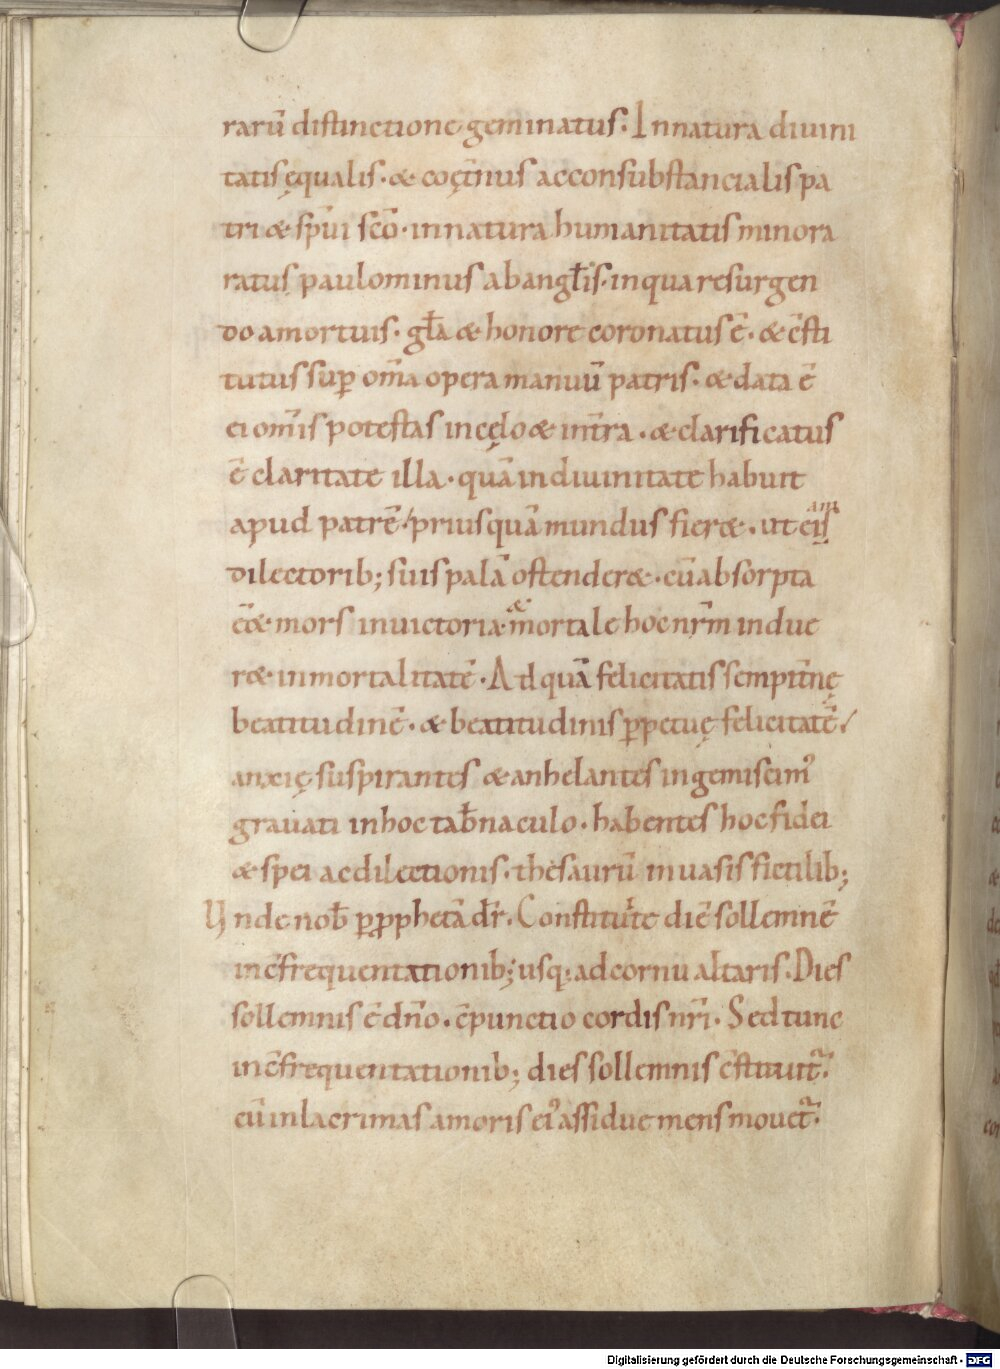 rarū distinctione geminatus. In natura diuini
tatis ęqualis. & coęt̄nus ac consubstancialis pa
tri & sp̄ui sc̄o. in natura humanitatis minora
ratus paulominus ab angl̄is. in qua resurgen
do a mortuis. gl̄a & honore coronatus ē. & c̄sti
tutus sup̄ om̄a opera manuū patris. & data ē
ei om̄is potestas in cęlo & int̄ra. & clarificatus
ē claritate illa. quā in diuinitate habuit
apud patrē / priusquā mundus fier&. ut eīs am
dilectorib; suis palā ostender&. cū absorpta
ēe& mors in uictoria. & mortale hoc nr̄m indue
r&. inmortalitatē. Ad quā felicitatis sempit̄nę
beatitudinē. & beatitudinis p̄petuę felicitatē /
anxię suspirantes & anhelantes ingemiscim᾽
grauati in hoc tab̄naculo. habentes hoc fidei
& spei ac dilectionis. thesaurū in uasis fictilib;
Unde nob̄ p̄ p̄ph&ā dr̄. Constituite diē sollemnē
in c̄frequentationib; usq; ad cornu altaris. Dies
sollemnis ē dn̄o. c̄punctio cordis nr̄i. Sed tunc
in c̄frequentationib; dies sollemnis c̄stituit᷑.
cū in lacrimas amoris ei᾽ assidue mens mouet᷑.
Digitalisierung gefördert durch die Deutsche Forschungsgemeinschaft - DFG